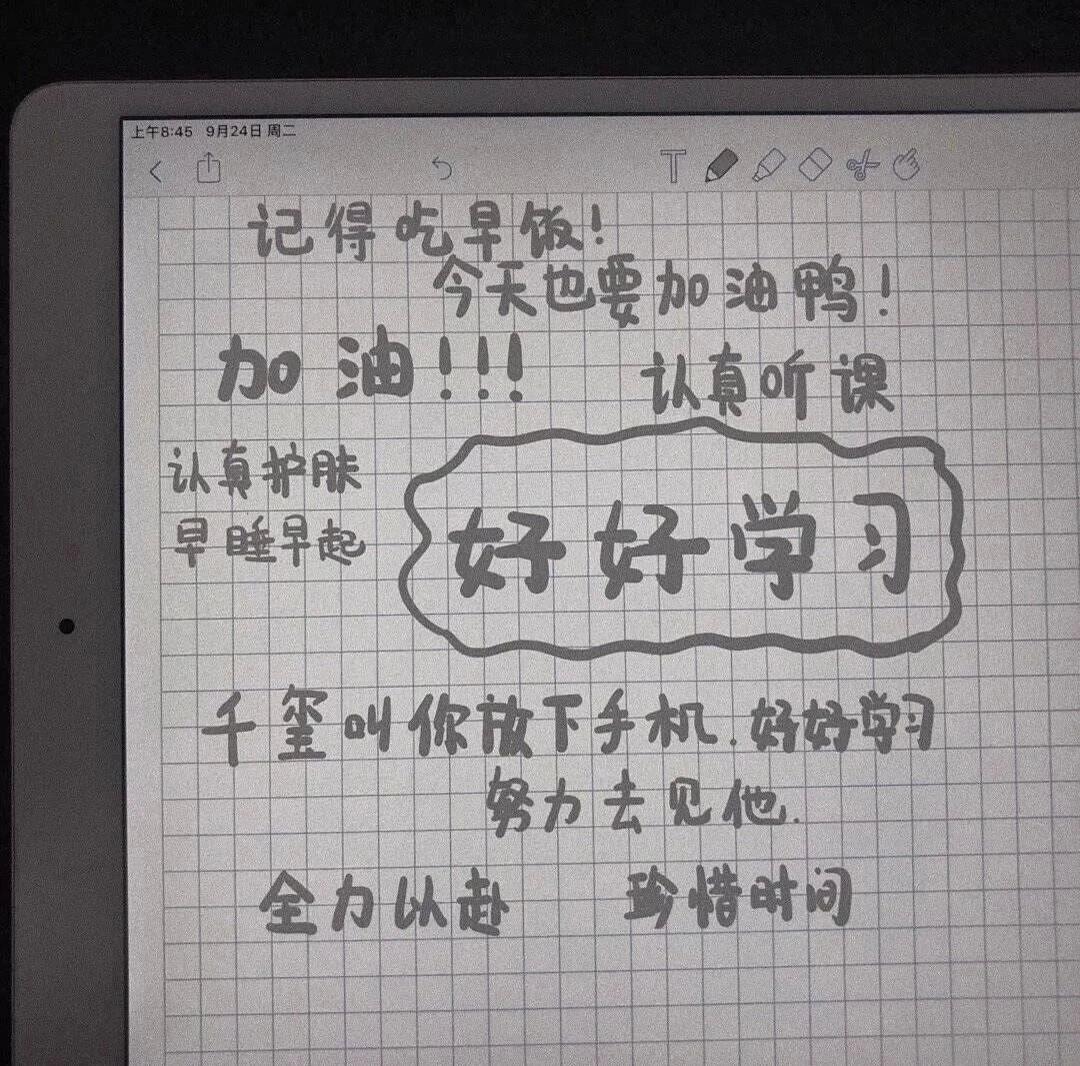 上午8:45 9月24日 周二
T
记得吃早饭!
今天也要加油鸭!
加油!!!
认真听课
认真护肤
早睡早起
好好学习
千玺叫你放下手机.好好学习
努力去见他.
全力以赴
珍惜时间